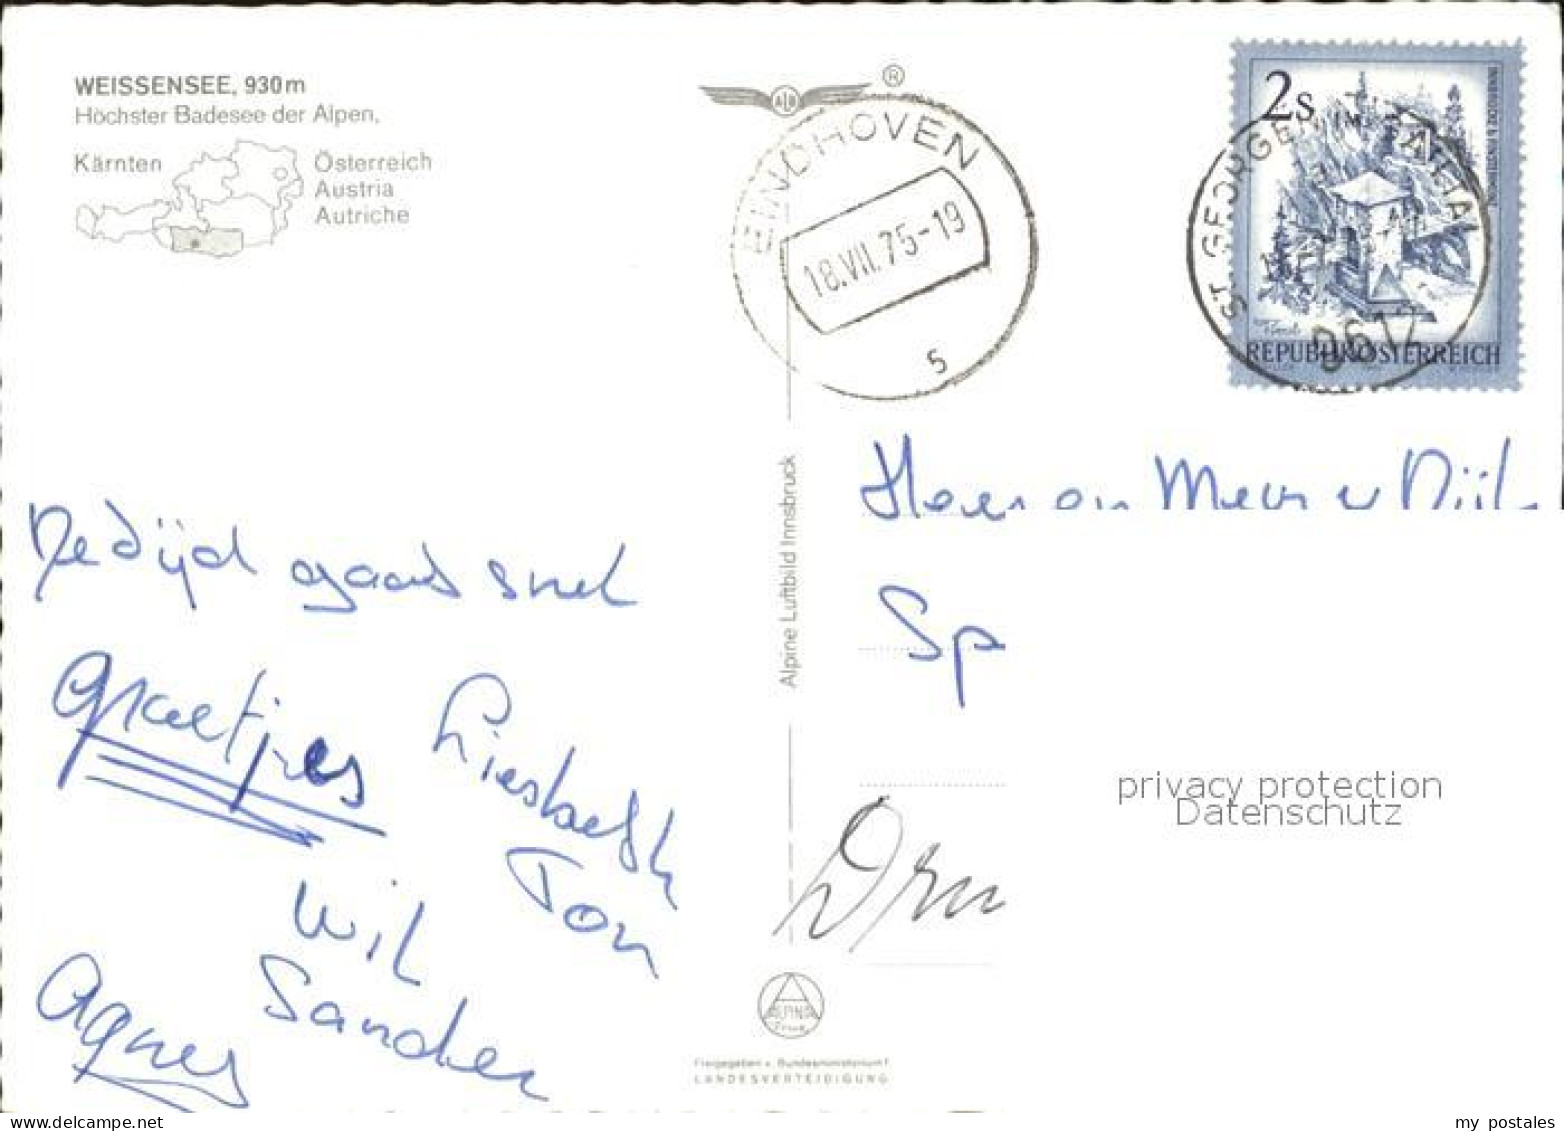 WEISSENSEE, 930m
Höchster Badesee der Alpen,
Kärnten
Österreich
Austria
Autriche
ALB
®
EINDHOVEN
18.VII.75-19
5
2s
ST. GEORGEN IM
REPUBLIK ÖSTERREICH
De tijd gaat snel
Groetjes
Liesbeth
Ton
Wil
Sander
Agnes
Alpine Luftbild Innsbruck
Sp
privacy protection
Datenschutz
ALPINA
Druck
Freigegeben v. Bundesministerium f.
LANDESVERTEIDIGUNG
delcampe.net
my_postales